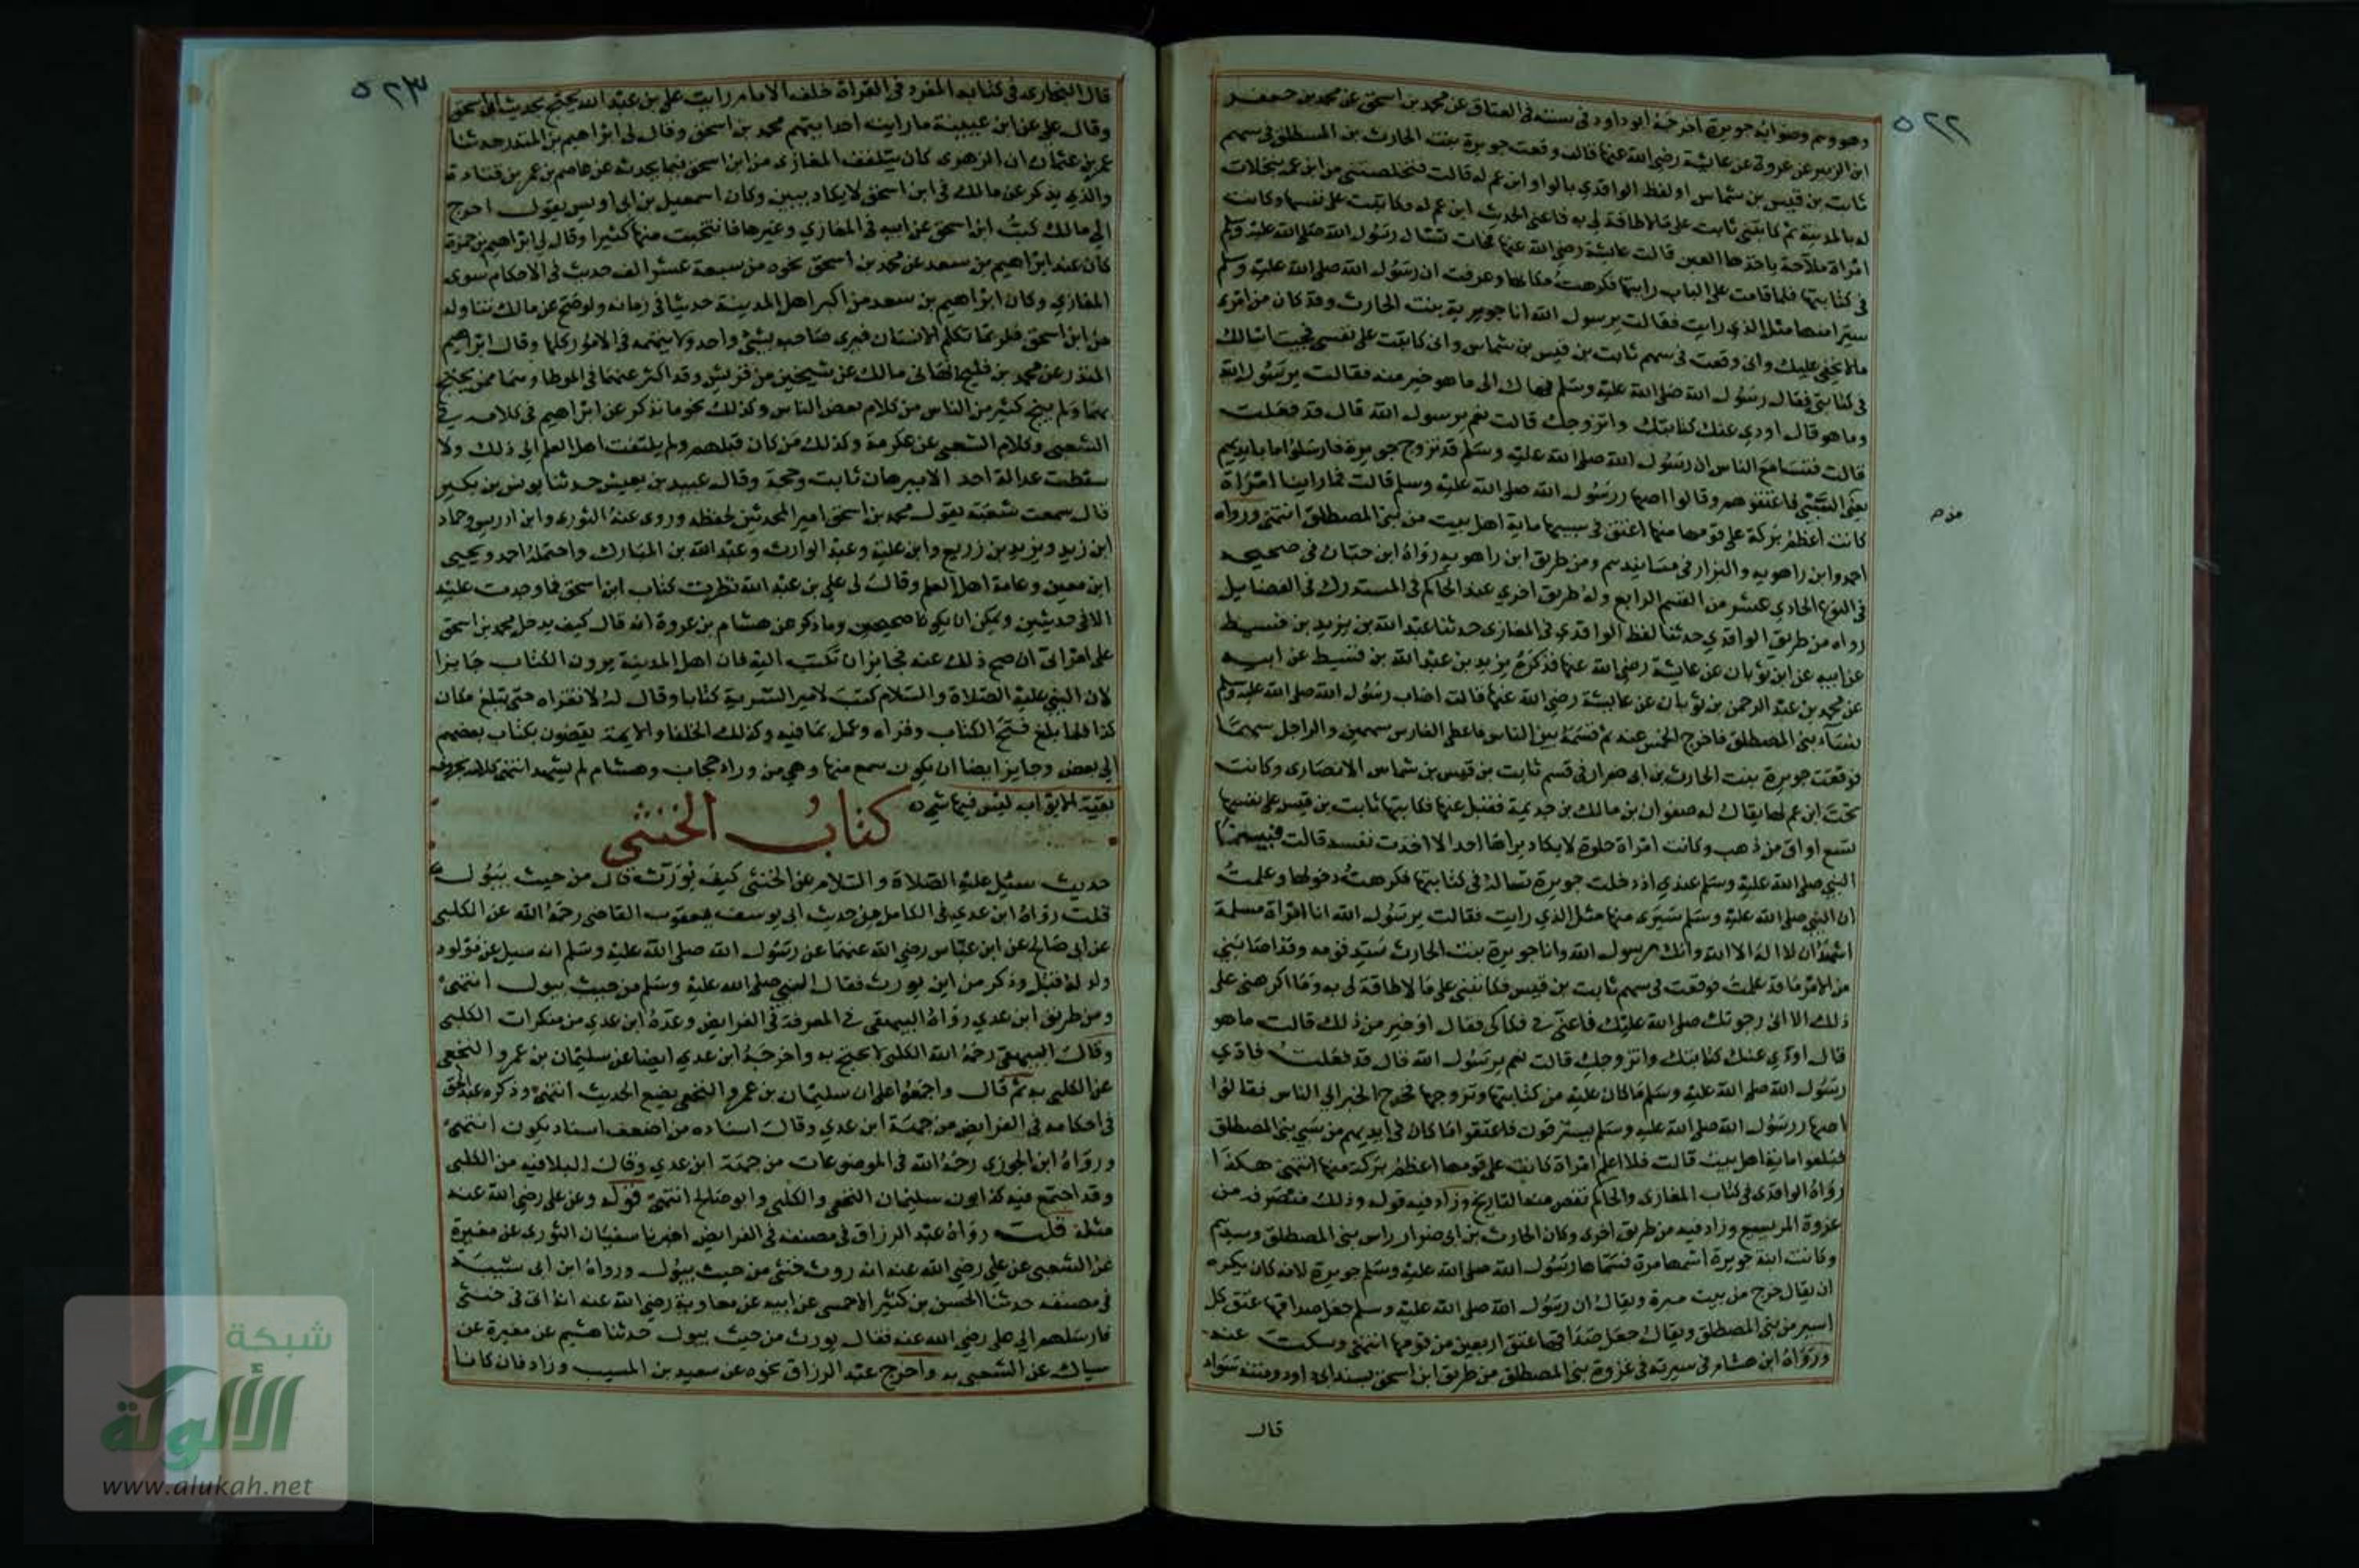 ٥٢٢
وهو وهم وصوابه جويرية اخرجه ابو داود في سننه في العتاق عن محمد بن اسحق عن محمد بن جعفر
ابن الزبير عن عروة عن عايشة رضي الله عنها قالت وقعت جويرية بنت الحارث بن المصطلق في سهم
ثابت بن قيس بن شماس او لفظ الواقدي بالواو ابن عم له قالت فتخلصني من ابن عمه بنخلات
له بالمدينة ثم كاتبني ثابت على مالا طاقة لي به فاعني الحديث ابن عم له وكاتبت على نفسها وكانت
امراة ملاحة ياخذها العين قالت عايشة رضي الله عنها فجات تسال رسول الله صلى الله عليه وسلم
في كتابتها فلما قامت على الباب رايتها فكرهت مكانها وعرفت ان رسول الله صلى الله عليه وسلم
سيرا منها مثل الذي رايت فقالت يرسول الله انا جويرية بنت الحارث وقد كان من امري
مالا يخفى عليك واني وقعت في سهم ثابت بن قيس بن شماس واني كاتبت على نفسي فجيت اسالك
في كتابتي فقال رسول الله صلى الله عليه وسلم فهل لك الى ما هو خير منه فقالت يرسول الله
وما هو قال اودي عنك كتابتك واتزوجك قالت نعم يرسول الله قال قد فعلت
قالت فتسامع الناس ان رسول الله صلى الله عليه وسلم قد تزوج جويرية فارسلوا ما بايديهم
يعني السبي فاعتقوهم وقالوا اصهار رسول الله صلى الله عليه وسلم قالت فما راينا امراة
كانت اعظم بركة على قومها منها اعتق في سببها ماية اهل بيت من بني المصطلق انتهى ورواه
احمد وابن راهويه والبزار في مسانيدهم ومن طريق ابن راهويه رواه ابن حبان في صحيحه
في النوع الحادي عشر من القسم الرابع وله طريق اخري عند الحاكم في المستدرك في الفضايل
رواه من طريق الواقدي حدثنا لفظ الواقدي في المغازى حدثنا عبد الله بن يزيد بن قسيط
عن ابيه عن ابن ثوبان عن عايشة رضي الله عنها فذكره يزيد بن عبد الله بن قسيط عن ابيه
عن محمد بن عبد الرحمن بن ثوبان عن عايشة رضي الله عنها قالت اصاب رسول الله صلى الله عليه وسلم
نساء بني المصطلق فاخرج الخمس عنه ثم قسمه بين الناس فاعطى الفارس سهمين والراجل سهما
فوقعت جويرة بنت الحارث بن ابي ضرار في قسم ثابت بن قيس بن شماس الانصارى وكانت
تحت ابن عم لها يقال له صفوان بن مالك بن جذيمة فقتل عنها فكاتبها ثابت بن قيس على نفسها
تسع اواق من ذهب وكانت امراة حلوة لا يكاد يراها احد الا اخذت نفسه قالت فبينما
النبي صلى الله عليه وسلم عندي اذ دخلت جويرة تساله في كتابتها فكرهت دخولها وعلمت
ان النبي صلى الله عليه وسلم سيرى منها مثل الذي رايت فقالت يرسول الله انا امراة مسلمة
اشهد ان لا اله الا الله وانك رسول الله وانا جويرة بنت الحارث سيد قومه وقد اصابني
من الامر ما قد علمت فوقعت في سهم ثابت بن قيس فكاتبني على مالا طاقة لي به وما اكرهني على
ذلك الا اني رجوتك صلى الله عليك فاعني في فكاكي فقال او خير من ذلك قالت ما هو
قال اودي عنك كتابتك واتزوجك قالت نعم يرسول الله قال قد فعلت فادي
رسول الله صلى الله عليه وسلم ما كان عليه من كتابتها وتزوجها فخرج الخبر الى الناس فقالوا
اصهار رسول الله صلى الله عليه وسلم يسترقون فاعتقوا ما كان في ايديهم من سبي بني المصطلق
فبلغوا ماية اهل بيت قالت فلا اعلم امراة كانت على قومها اعظم بركة منها انتهى هكذا
رواه الواقدى في كتاب المغازى والحاكم نقص منه التاريخ وزاد فيه قوله وذلك منصرفه من
غزوة المريسيع وزاد فيه من طريق اخرى وكان الحارث بن ابي ضرار راس بني المصطلق وسيدهم
وكانت ابنته جويرة اسمها مرة فسماها رسول الله صلى الله عليه وسلم جويرة لانه كان يكره
ان يقال خرج من بيت مرة ويقال ان رسول الله صلى الله عليه وسلم جعل صداقها عتق كل
اسير من بني المصطلق ويقال جعل صداقها عتق اربعين من قومها انتهى وسكت عنه
ورواه ابن هشام في سيرته في غزوة بني المصطلق من طريق ابن اسحق بسند ابي داود ومتنه سواء
قال
٥٢٣
قال البخارى في كتابه المفرد في القراة خلف الامام رايت علي بن عبد الله يحتج بحديث ابن اسحق
وقال علي عن ابن عيينة ما رايت احدا يتهم محمد بن اسحق وقال لي ابراهيم بن المنذر حدثنا
عمر بن عثمان ان الزهرى كان يتلقف المغازى من ابن اسحق فيما يحدثه عن عاصم بن عمر بن قتادة
والذي يذكر عن مالك في ابن اسحق لا يكاد يبين وكان اسمعيل بن ابي اويس يقول اخرج
الي مالك كتب ابن اسحق عن ابيه في المغازي وغيرها فانتخبت منها كثيرا وقال لي ابراهيم بن حمزة
كان عند ابراهيم بن سعد عن محمد بن اسحق نحوه من سبعة عشر الف حديث في الاحكام سوى
المغازي وكان ابراهيم بن سعد من اكبر اهل المدينة حديثا في زمانه ولو صح عن مالك تناوله
من ابن اسحق فلربما تكلم الانسان فيرى صاحبه بشئ واحد ولا يتهمه في الامور كلها وقال ابراهيم
المنذر عن محمد بن فليح نهاني مالك عن شيخين من قريش وقد اكثر عنهما في الموطا وهما ممن يحتج
بهما ولم ينج كثير من الناس من كلام بعض الناس وكذلك نحو ما نذكر عن ابراهيم في كلامه في
الشعبي وكلام الشعبي عن عكرمة وكذلك من كان قبلهم ولم يلتفت اهل العلم الي ذلك ولا
سقطت عدالة احد الا ببرهان ثابت وحجة وقال عبيد بن يعيش حدثنا يونس بن بكير
قال سمعت شعبة يقول محمد بن اسحق امير المحدثين لحفظه وروى عنه الثورى وابن ادريس وحماد
ابن زيد ويزيد بن زريع وابن علية وعبد الوارث وعبد الله بن المبارك واحتمله احمد ويحيى
ابن معين وعامة اهل العلم وقال لي علي بن عبد الله نظرت كتاب ابن اسحق فما وجدت عليه
الا في حديثين ويمكن ان يكونا صحيحين وما ذكر عن هشام بن عروة انه قال كيف يدخل محمد بن اسحق
على امراتي ان صح ذلك عنه فجايز ان تكتب اليه فان اهل المدينة يرون الكتاب جايزا
لان النبي عليه الصلاة والسلام كتب لامير السرية كتابا وقال له لا تقراه حتى تبلغ مكان
كذا فلما بلغ فتح الكتاب وقراه وعمل بما فيه وكذلك الخلفا والايمة يقضون بكتاب بعضهم
الي بعض وجايز ايضا ان يكون سمع منها وهي من وراء حجاب وهشام لم يشهد انتهى كلامه بحروفه
بقية الابواب ليس فيها شيء
كتاب الخنثى
حديث سئل عليه الصلاة والسلام عن الخنثى كيف يورث قال من حيث يبول
قلت رواه ابن عدي في الكامل من حديث ابي يوسف يعقوب القاضي رحمه الله عن الكلبي
عن ابي صالح عن ابن عباس رضي الله عنهما عن رسول الله صلى الله عليه وسلم انه سيل عن مولود
ولد له قبل وذكر من اين يورث فقال النبي صلى الله عليه وسلم من حيث يبول انتهى
ومن طريق ابن عدي رواه البيهقى في المعرفة في الفرايض وعده ابن عدي من منكرات الكلبي
وقال البيهقى رحمه الله الكلبي لا يحتج به واخرجه ابن عدي ايضا عن سليمان بن عمرو النخعي
عن الكلبي به ثم قال واجمعوا على ان سليمان بن عمرو النخعي يضع الحديث انتهى وذكره عبد الحق
في احكامه في الفرايض من جهة ابن عدي وقال اسناده من اضعف اسناد يكون انتهى
ورواه ابن الجوزي رحمه الله في الموضوعات من جهة ابن عدي وقال البلا فيه من الكلبي
وقد اجتمع فيه كذابون سليمان النخعي والكلبي وابو صالح انتهى قوله وعن علي رضي الله عنه
مثله قلت رواه عبد الرزاق في مصنفه في الفرايض اخبرنا سفيان الثورى عن مغيرة
عن الشعبي عن علي رضي الله عنه انه روث خنثى من حيث يبول ورواه ابن ابي شيبة
في مصنفه حدثنا الحسن بن كثير الاحمسي عن ابيه عن معاوية رضي الله عنه انه اتى في خنثى
فارسلهم الى علي رضي الله عنه فقال يورث من حيث يبول حدثنا هشيم عن مغيرة عن
سماك عن الشعبي به واخرج عبد الرزاق نحوه عن سعيد بن المسيب وزاد فان كانا
شبكة
الألوكة
www.alukah.net